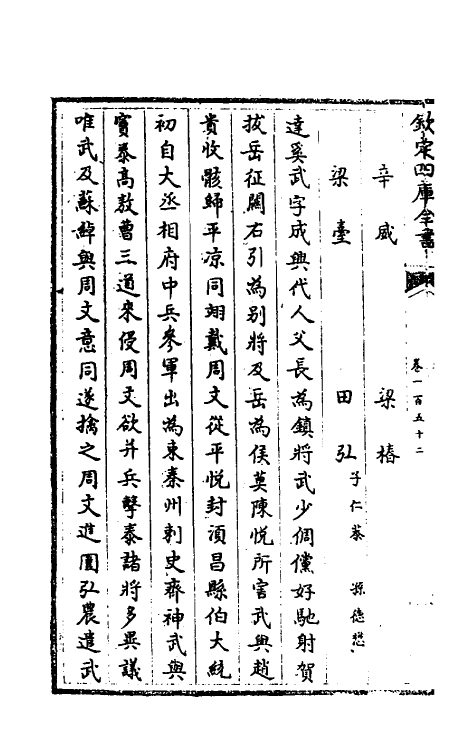 欽定四庫全書
卷一百五十二
辛威 梁椿
梁臺 田弘 子仁恭 孫德懋
達奚武字成興代人父長為鎮將武少倜儻好馳射賀
拔岳征關右引為别將及岳為侯莫陳悦所害武與趙
貴收骸歸平凉同翊戴周文從平悦封湏昌縣伯大統
初自大丞相府中兵叅軍出為東秦州刺史齊神武與
竇泰高敖曹三道來侵周文欲并兵擊泰諸將多異議
唯武及蘇綽與周文意同遂擒之周文進圖弘農遣武